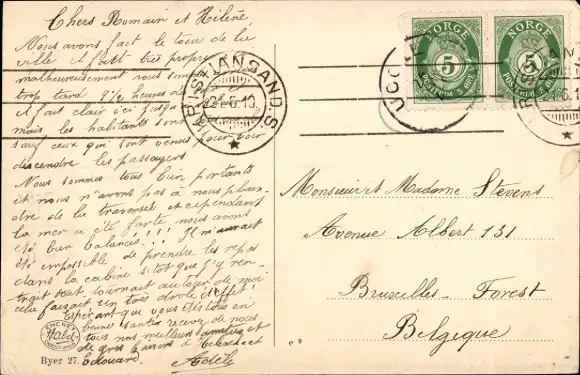 Chers Romain et Hélène,
Nous avons fait le tour de la
ville il fait très propre
malheureusement nous
trop tard 8½ heures
il fait clair ici jusqu'a
mais les habitants sont
sauf ceux qui sont venus pour voir
descendre les passagers
Nous sommes tous bien portants
et nous n'avons pas a nous plain-
dre de la traversée et cependant
la mer a été forte nous avons
été bien balancés!!! Il m'aurait
été impossible de prendre les repas
dans la cabine sitôt que j'y ren-
trait tout tournait autour de moi
cela faisait un très drôle d'effet!
Espérant que vous êtes tous en
bonne santé recevez de nous
tous nos meilleurs amitiés et
de gros baisers à
Edouard Adèle
Byer 27.
ENERET
Habel
KRISTIANSAND S.
21.6.10
UCCLE
NORGE
5
POSTFRIM. 5 ØRE
NORGE
5
POSTFRIM. 5 ØRE
Monsieur et Madame Stevens
Avenue Albert 131
Bruxelles-Forest
Belgique